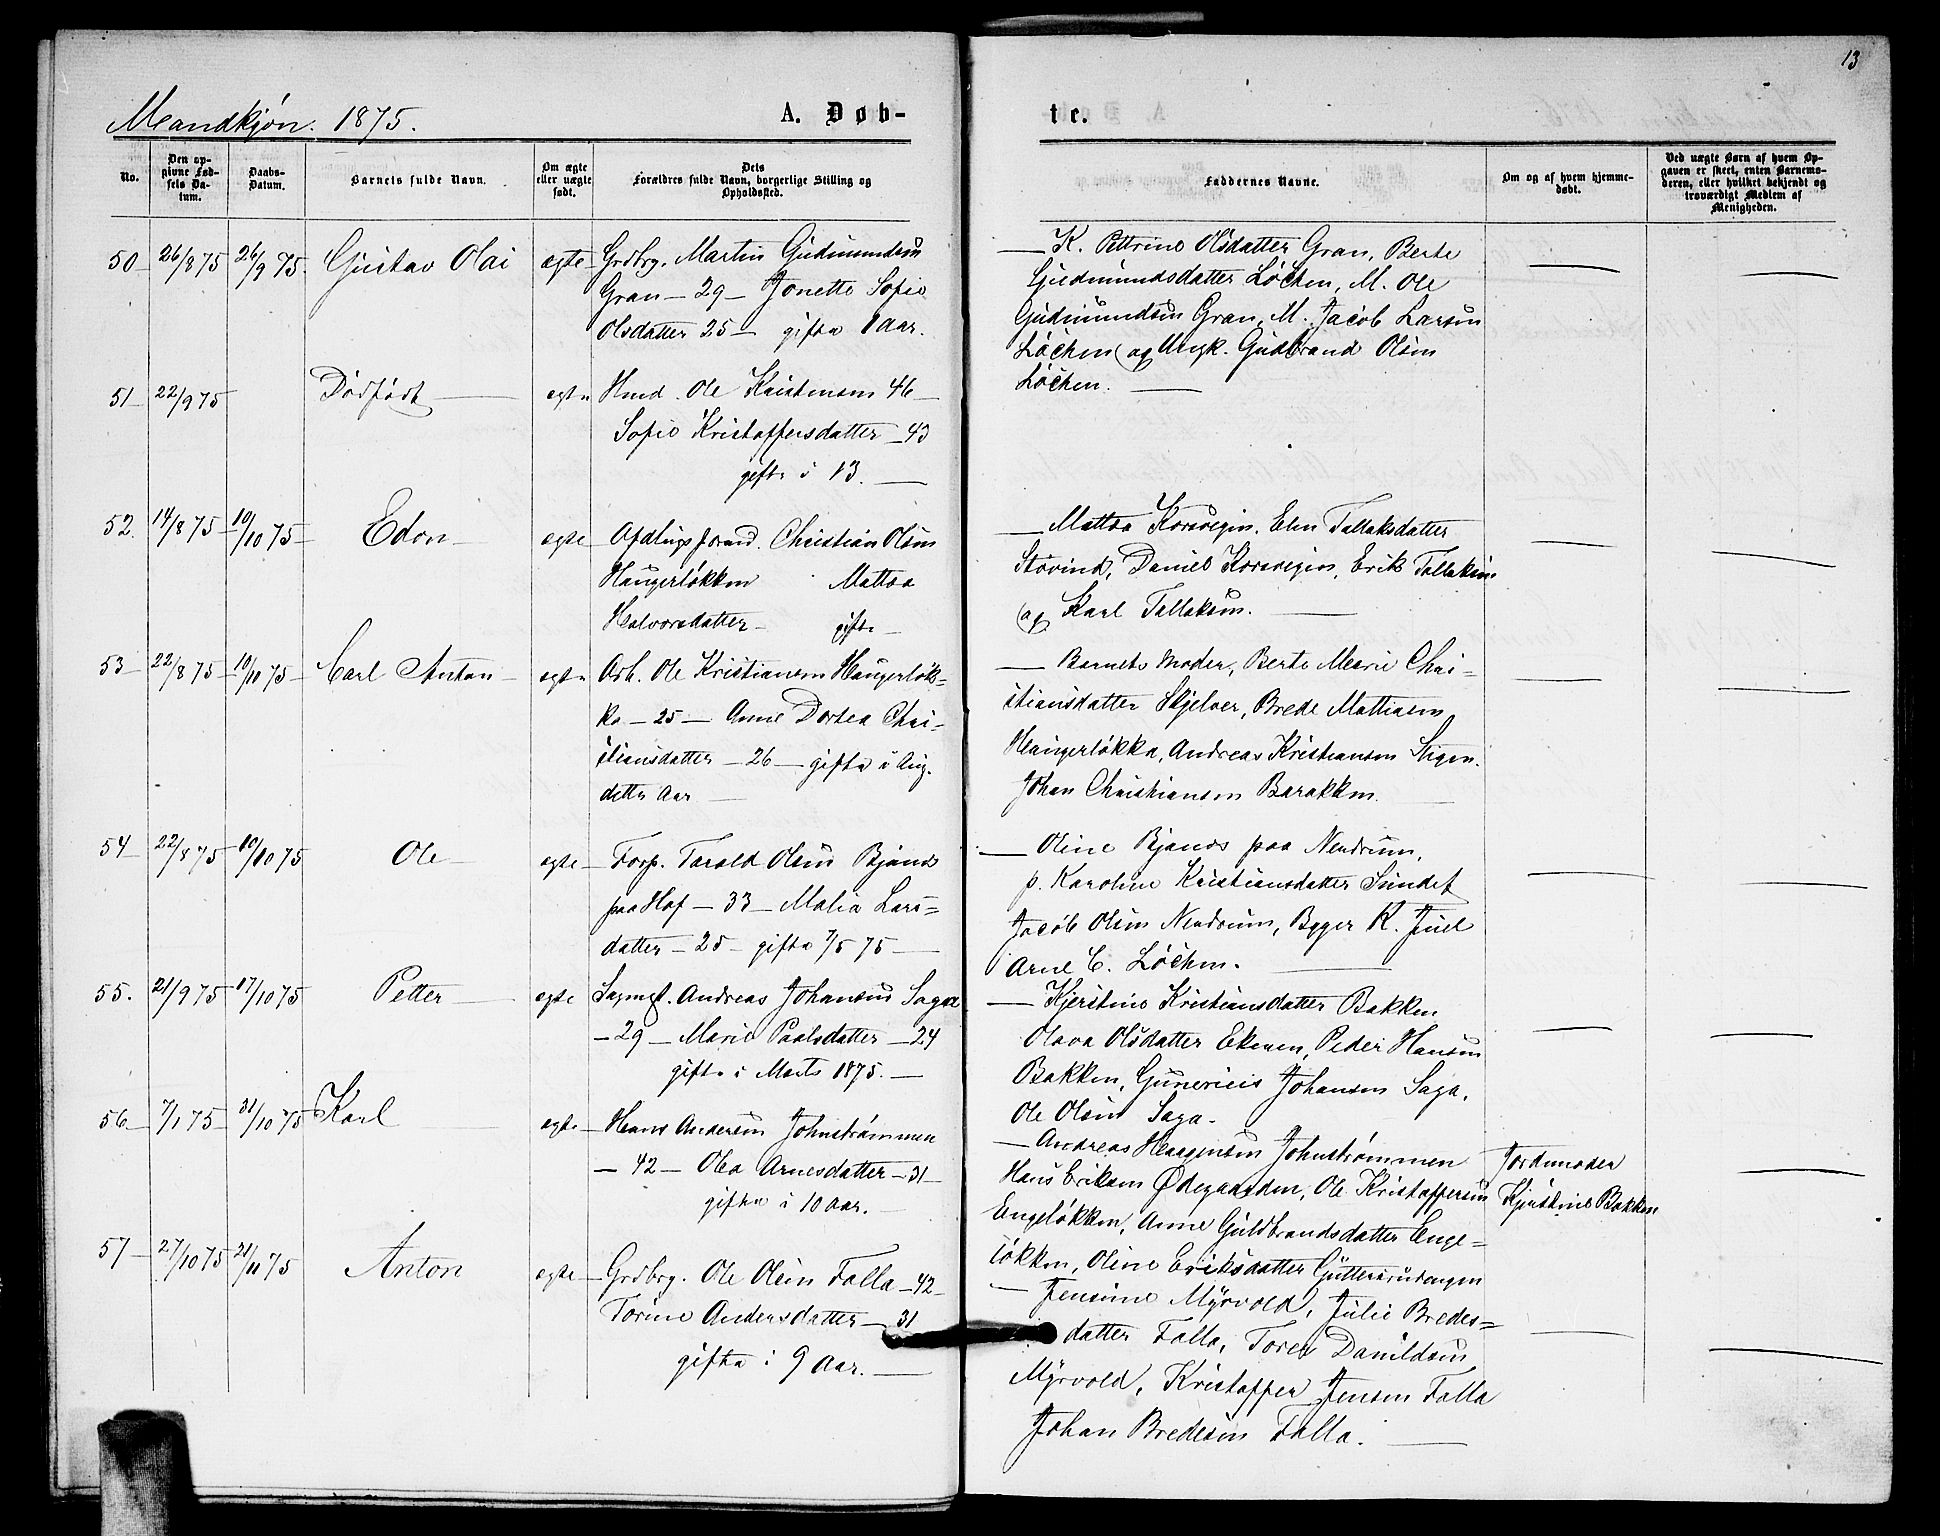 13
Mandkjøn. 1875.
A. Døb-
te.
No.
Den op-
givne Fød-
sels Da-
tum.
Daabs-
Datum.
Barnets fulde Navn.
Om ægte
eller uægte
født.
Dets
Forældres fulde Navn, borgerlige Stilling og
Opholdssted.
Faddernes Navne.
Om og af hvem hjemme-
døbt.
Ved uægte Børn af hvem Op-
gaven er skeet, enten Barnemo-
deren, eller hvilket bekjendt og
troværdigt Medlem af
Menigheden.
50 26/8 75 26/9 75. Gustav Olai ægte Grdbrg. Martin Gudmundsen
Gran - 29 - Jonette Sofie
Olsdatter 25 - gifte 1 Aar.
K. Pettrine Olsdatter Gran, Berte
Gudmundsdatter Løchen, M. Ole
Gudmundsen Gran, M. Jacob Larsen
Løchen og Ungk. Gudbrand Olsen
Løchen.
51 22/9 75 Dødfødt ægte Hmd. Ole Kristensen 46
Sofie Kristoffersdatter - 43
gifte i 13.
52. 14/8 75 10/10 75 Edon ægte Aflingsformd. Christian Olsen
Haugerløkken Mattea
Halvorsdatter - gifte -
Mattea Korsvegen, Elen Tallaksdatter
Støvind, Daniel Korsvegen, Erik Tallaksen
og Karl Tallaksen.
53 22/8 75 10/10 75 Carl Anton ægte Arb. Ole Kristiansen Haugerløk-
ka - 25 - Anne Dortea Chri-
stiansdatter - 26 - gifte i Aug.
dette Aar
Barnets Moder, Berte Marie Chri-
stiansdatter Skjelver, Brede Mattiasen
Haugerløkka, Andreas Kristiansen Stigen.
Johan Christiansen Barakken.
54 22/8 75 10/10 75 Ole ægte Forp. Tarald Olsen Bjanes
paa Hof - 33 - Malia Lars-
datter - 25 - gifte 7/5 75
Oline Bjanes paa Nendrum,
p. Karoline Kristiansdatter Sundet
Jacob Olsen Nendrum, Bgger K. Juel
Arne C. Løchen.
55. 21/9 75 17/10 75 Petter ægte Sagmst. Andreas Johansen Saga
- 29 - Marie Paalsdatter - 24
gifte i Marts 1875.
Kjerstine Kristiansdatter Bakken
Olava Olsdatter Ekeren, Peder Hansen
Bakken, Gunerius Johansen Saga,
Ole Olsen Saga.
56 7/1 75 31/10 75 Karl ægte Hans Andersen Johnstrømmen
- 42 - Olea Arnesdatter - 31
gifte i 10 Aar.
Andreas Haagensen Johnstrømmen
Hans Eriksen Ødegaarden, Ole Kristoffersen
Engeløkken, Anne Guldbrandsdatter Enge-
løkken, Oline Eriksdatter Guttersrudengen
Jordmoder
Kjerstine Bakken
57 27/10 75 21/11 75 Anton ægte Grdbrg. Ole Olsen Falla - 42
Torine Andersdatter - 31
gifte i 9 Aar.
Jensine Myrvold, Julie Bredes-
datter Falla, Torer Danildsen
Myrvold, Kristoffer Jensen Falla
Johan Bredesen Falla.